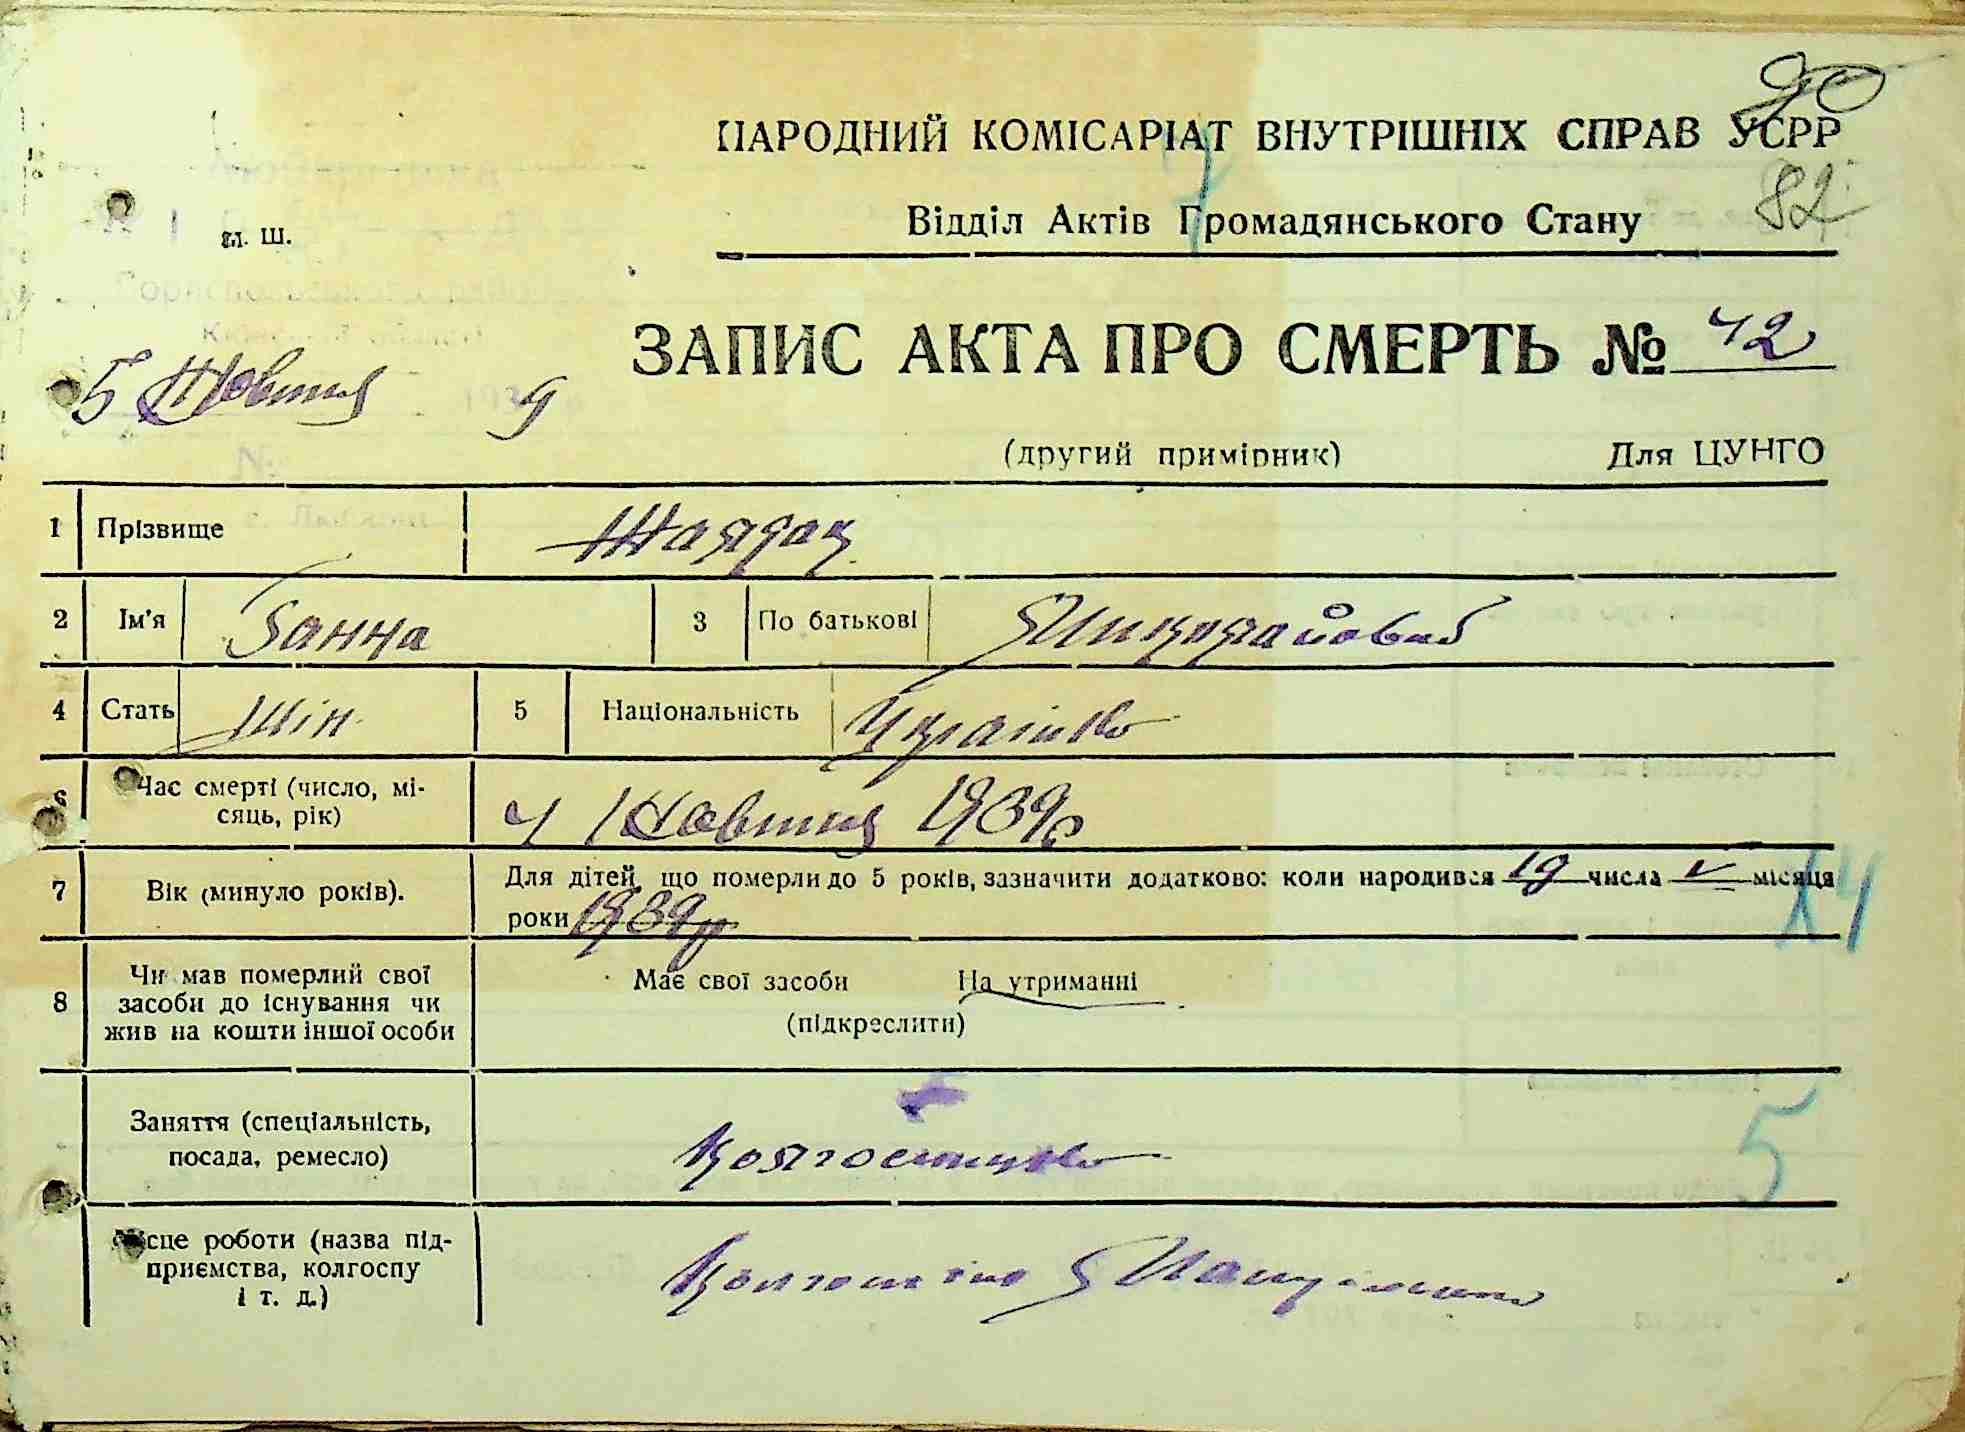 90
НАРОДНИЙ КОМІСАРІАТ ВНУТРІШНІХ СПРАВ УСРР
Відділ Актів Громадянського Стану 82
м. Ш.
ЗАПИС АКТА ПРО СМЕРТЬ № 42
5 Жовтня 9
(другий примірник) Для ЦУНГО
1 Прізвище
2 Ім'я Ганна 3 По батькові Николайовна
4 Стать Жін 5 Національність Українка
6 Час смерті (число, мі-
сяць, рік) 4 Жовтня 1939р
7 Вік (минуло років). Для дітей, що померли до 5 років, зазначити додатково: коли народився 19 числа V місяця
роки 1939р
14
8 Чи мав померлий свої
засоби до існування чи
жив на кошти іншої особи
Має свої засоби На утриманні
(підкреслити)
Заняття (спеціальність,
посада, ремесло) Колгоспниця
5
Місце роботи (назва під-
приємства, колгоспу
і т. д.)